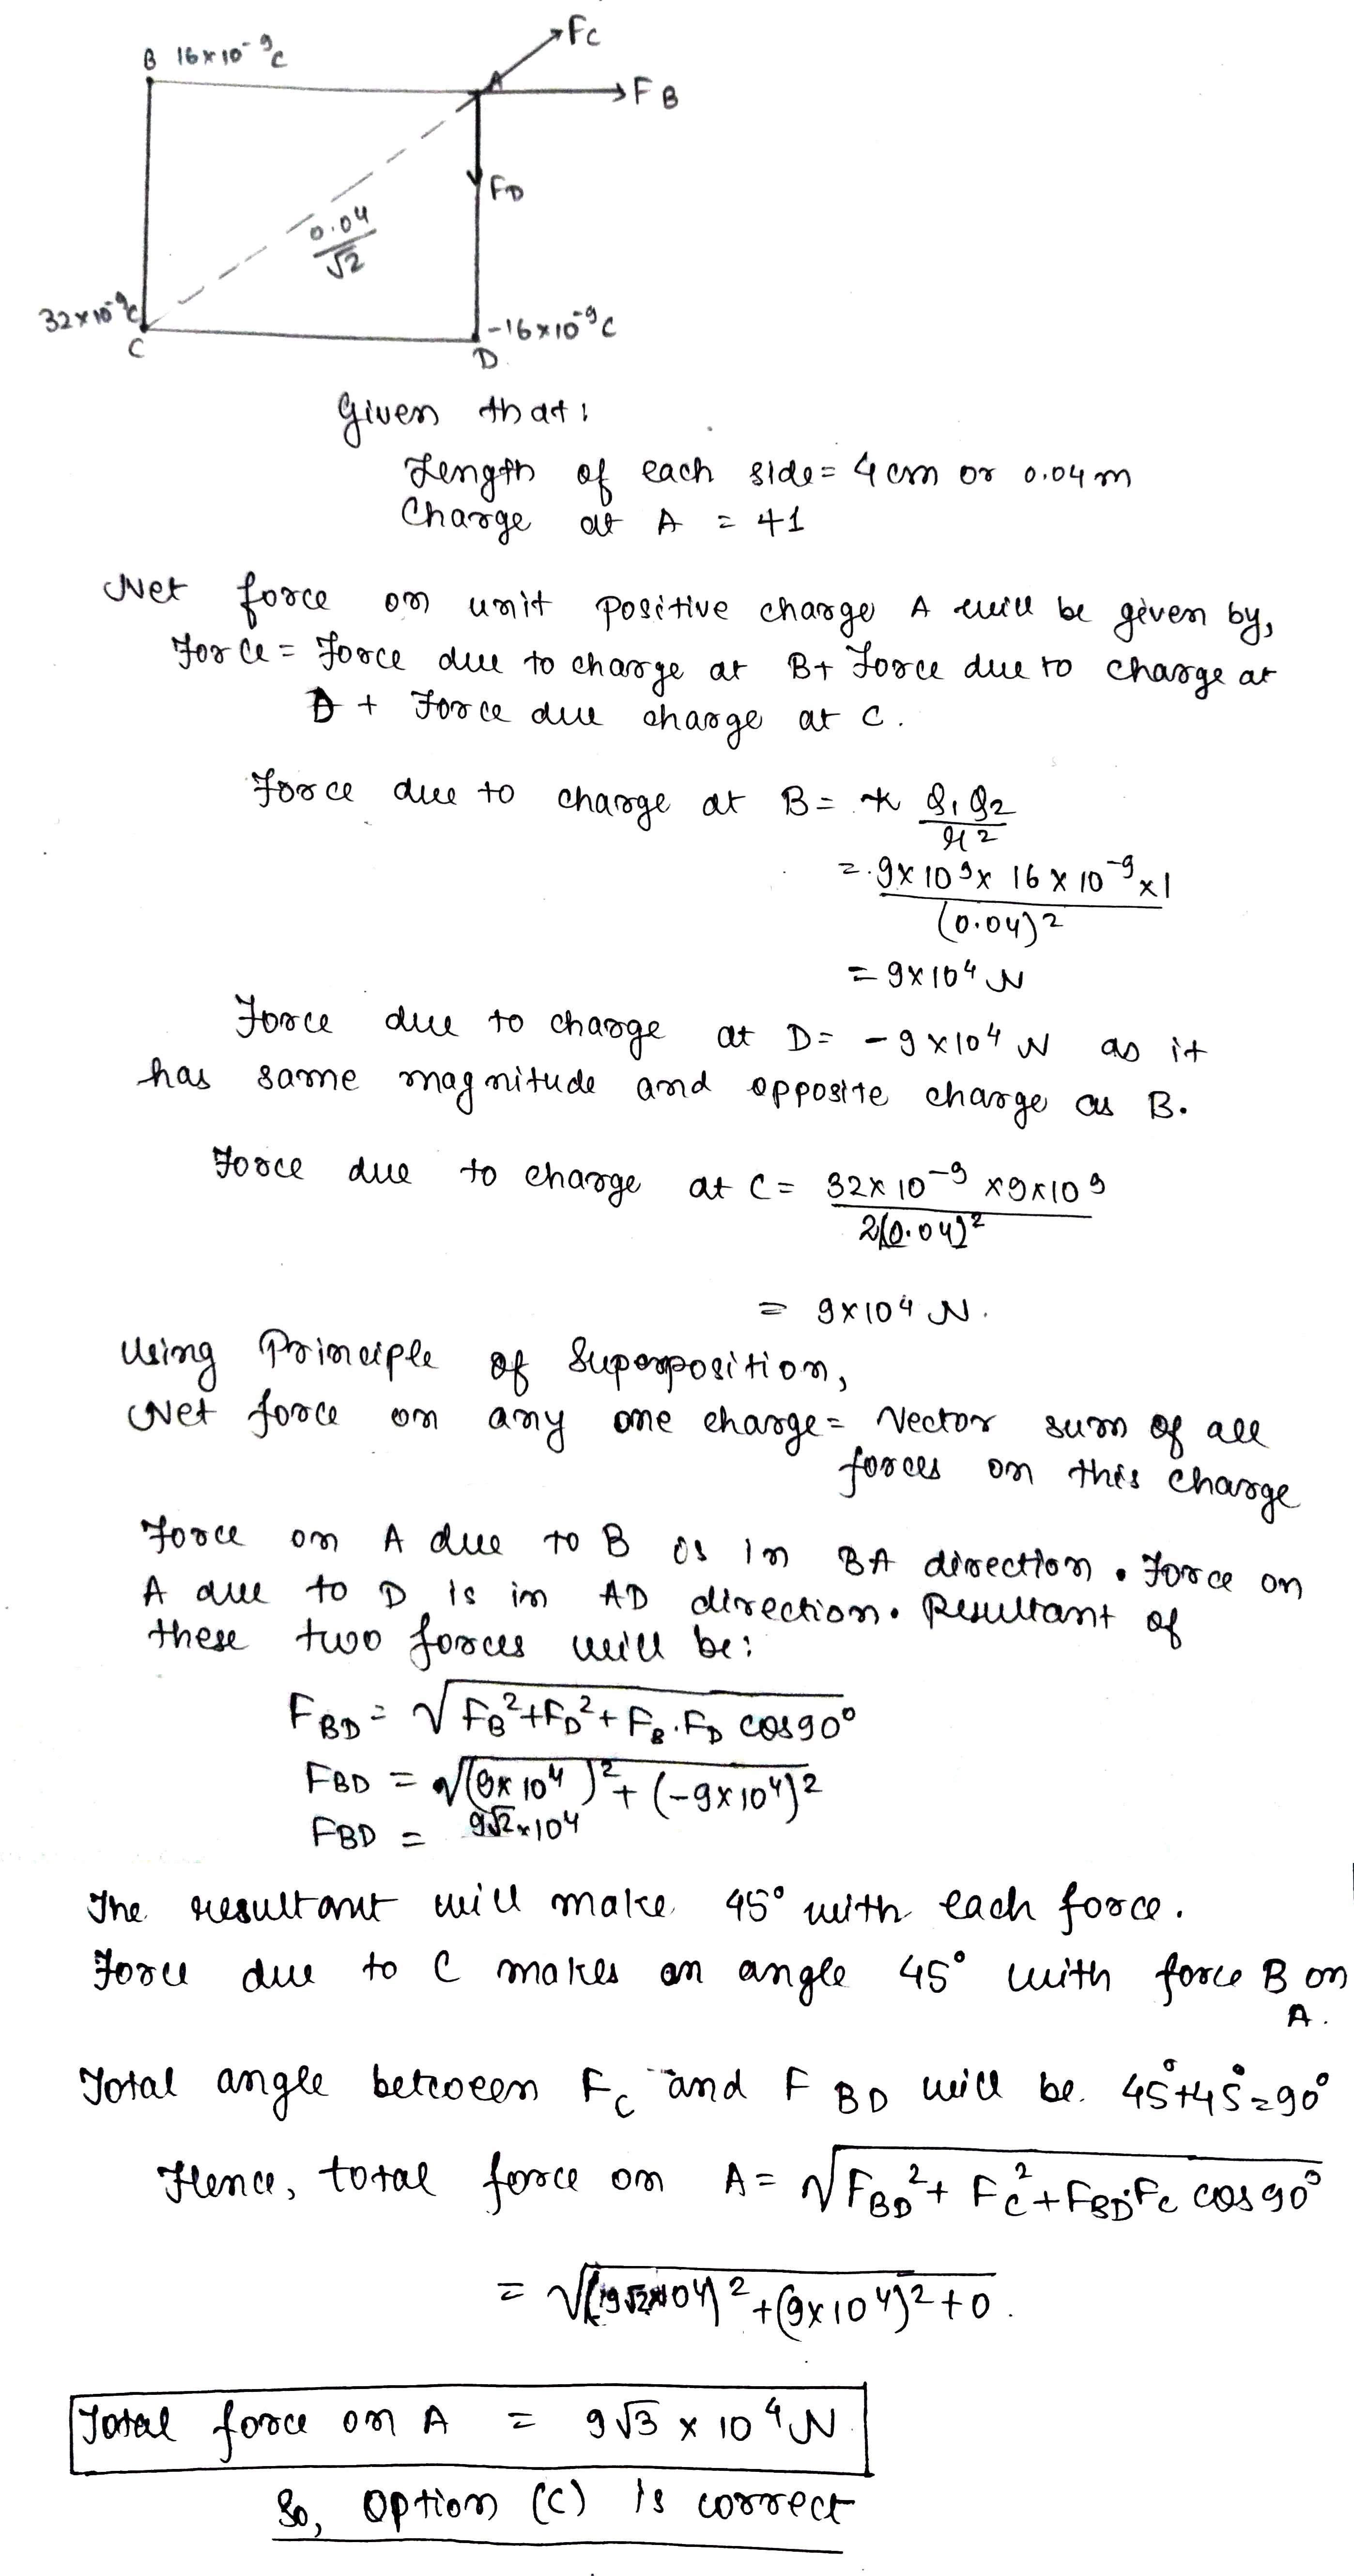 Fc
B 16×10⁻⁹c
A
F B
FD
0.04/√2
32×10⁻⁹c
C
-16×10⁻⁹c
D
Given that:
Length of each side = 4 cm or 0.04 m
Charge at A = +1
Net force on unit positive charge A will be given by,
Force = Force due to charge at B + Force due to charge at
D + Force due charge at C.
Force due to charge at B = k Q₁Q₂/r²
= 9×10⁹×16×10⁻⁹×1/(0.04)²
= 9×10⁴ N
Force due to charge at D = -9×10⁴ N as it
has same magnitude and opposite charge as B.
Force due to charge at C = 32×10⁻⁹×9×10⁹/2(0.04)²
= 9×10⁴ N.
Using Principle of Superposition,
Net force on any one charge = Vector sum of all
forces on this charge
Force on A due to B is in BA direction. Force on
A due to D is in AD direction. Resultant of
these two forces will be:
FBD = √FB²+FD²+FB.FD cos90°
FBD = √(9×10⁴)²+(-9×10⁴)²
FBD = 9√2×10⁴
The resultant will make 45° with each force.
Force due to C makes an angle 45° with force B on
A.
Total angle between Fc and F BD will be 45°+45°=90°
Hence, total force on A = √FBD²+Fc²+FBD.Fc cos90°
= √(9√2×10⁴)²+(9×10⁴)²+0.
Total force on A = 9√3×10⁴ N
So, option (C) is correct